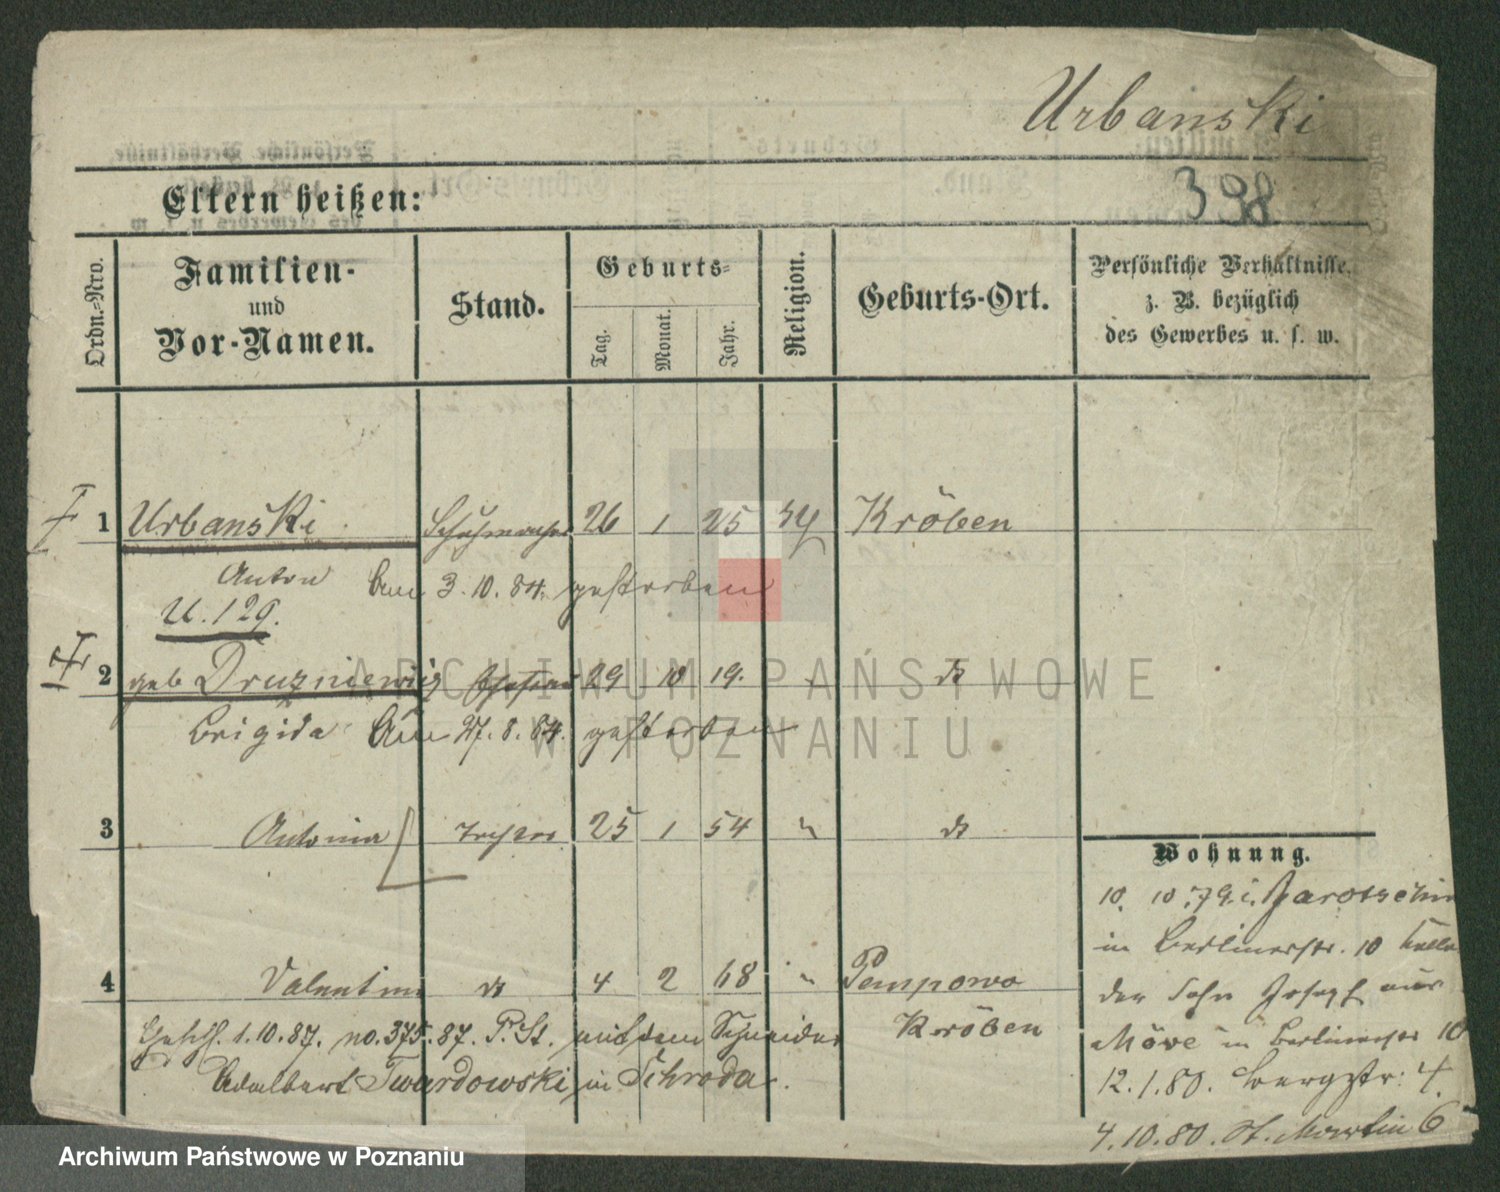 Urbanski
Eltern heißen:
398
Ordn.-Nro.
Familien-
und
Vor-Namen.
Stand.
Geburts-
Tag.
Monat.
Jahr.
Religion.
Geburts-Ort.
Persönliche Verhältnisse,
z. B. bezüglich
des Gewerbes u. s. w.
1 Urbanski Schuhmacher 26 1 25 Kröben
Anton am 3.10.84. gestorben
U. 129.
2 geb Druzniewicz 29 10 19. do
Brigida Am 27.8.84. gestorben
3 Antonina Tochter 25 1 54 " do
4 Valentina do 4 2 68 " Pempowo
Kröben
1.10.87. no. 375.87. P. St. mit dem Schneider
Adalbert Twardowski in Schroda.
Wohnung.
10. 10.79. i. Jarotschin
in Berlinerstr. 10
der Sohn Joseph aus
in Berlinerstr 10
12.1.80. Bergstr: 4.
4.10.80. St. Martin 6
ARCHIWUM PAŃSTWOWE
W POZNANIU
Archiwum Państwowe w Poznaniu